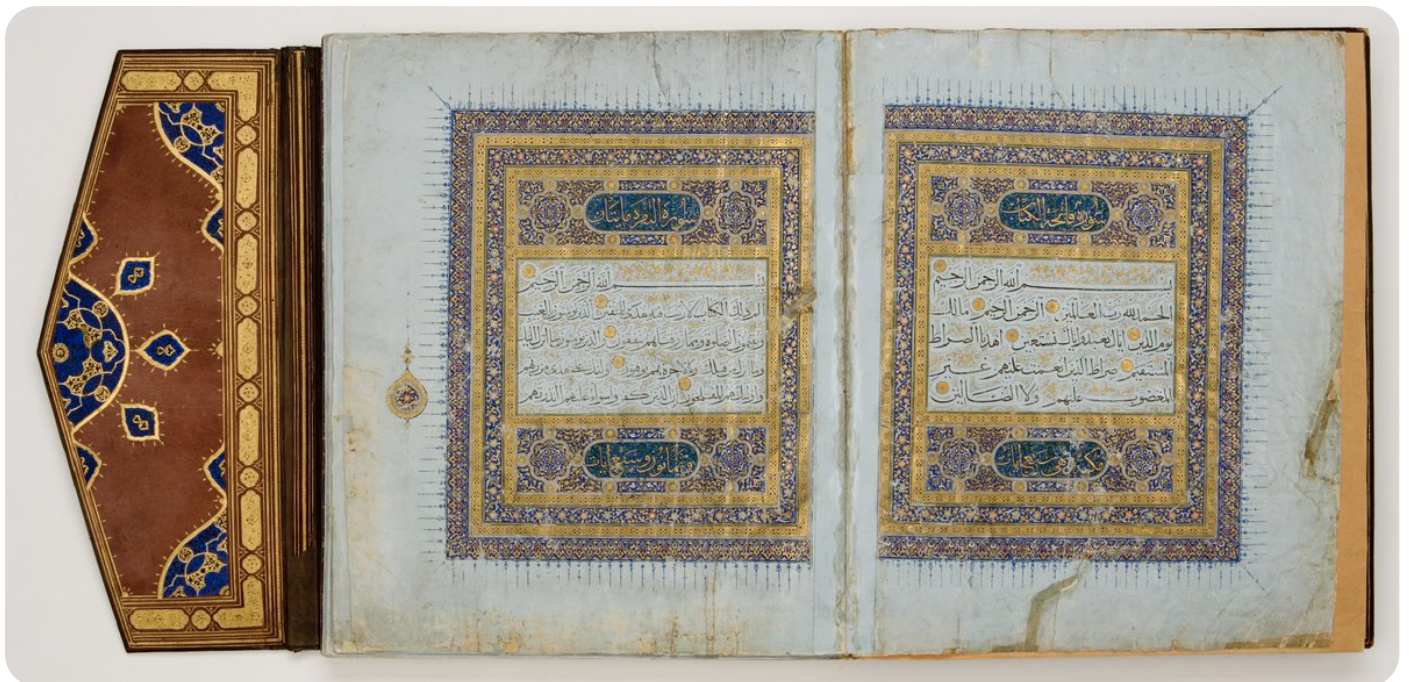 سورة فاتحة الكتاب
بسم الله الرحمن الرحيم
الحمد لله رب العالمين الرحمن الرحيم مالك
يوم الدين اياك نعبد واياك نستعين اهدنا الصراط
المستقيم صراط الذين انعمت عليهم غير
المغضوب عليهم ولا الضالين
مكية وهي سبع ايات
سورة البقرة مائتان
بسم الله الرحمن الرحيم
الم ذلك الكتاب لا ريب فيه هدى للمتقين الذين يؤمنون بالغيب
ويقيمون الصلوة ومما رزقناهم ينفقون والذين يؤمنون بما انزل اليك
وما انزل من قبلك وبالاخرة هم يوقنون اولئك على هدى من ربهم
واولئك هم المفلحون ان الذين كفروا سواء عليهم ءانذرتهم
وثمانون وسبع ايات